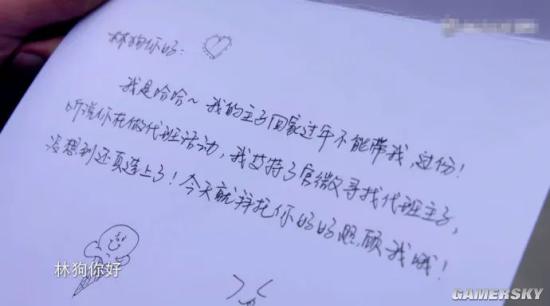 林狗你好：
我是哈哈～我的主子回家过年不能带我，过份！
听说你在做代班活动，我艾特了官微寻找代班主子，
没想到还真选上了！今天就拜托你好好照顾我哦！
林狗你好
GAMERSKY